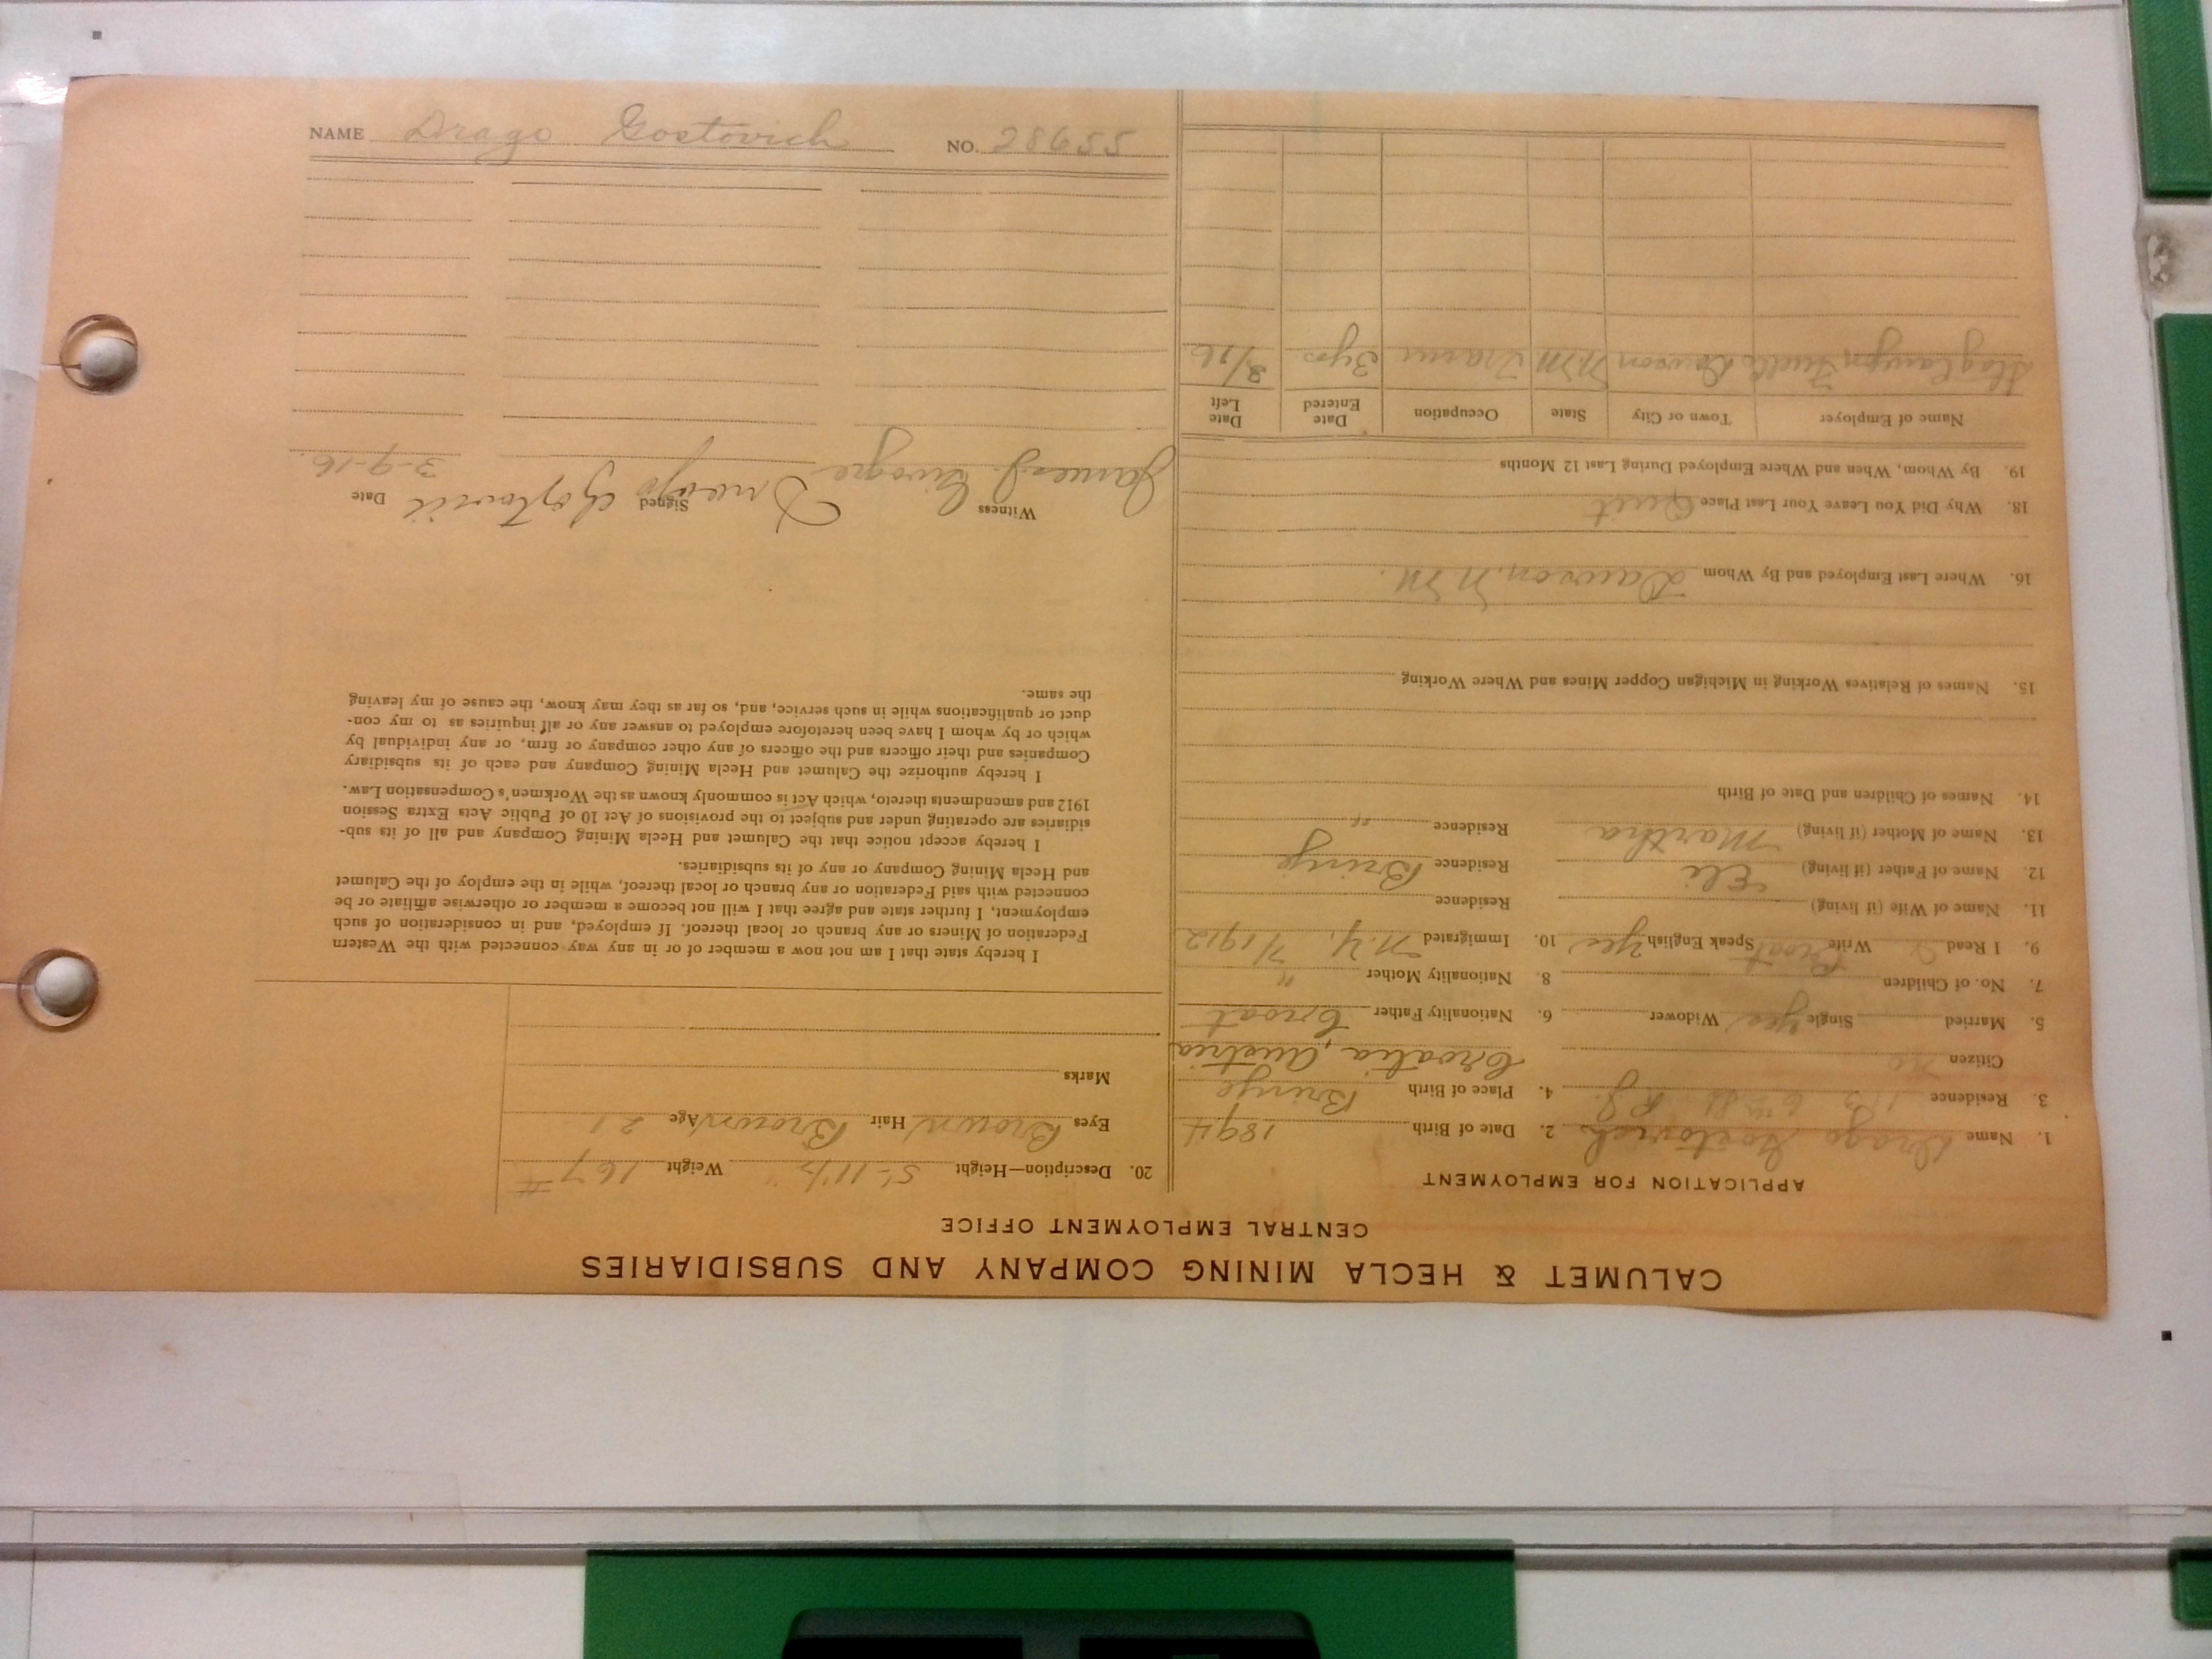 NAME Drago Gostovich NO. 28655
CALUMET & HECLA MINING COMPANY AND SUBSIDIARIES
CENTRAL EMPLOYMENT OFFICE
APPLICATION FOR EMPLOYMENT
1. Name Drago Gostovich 2. Date of Birth 1894
3. Residence 113 6th St R.J. 4. Place of Birth Brinje
Citizen no Croatia, Austria
5. Married Single yes Widower 6. Nationality Father Croat
7. No. of Children 8. Nationality Mother "
9. I Read Write Croat Speak English yes 10. Immigrated N.Y. 7/1912
11. Name of Wife (if living) Residence
12. Name of Father (if living) Eli Residence Brinje
13. Name of Mother (if living) Martha Residence "
14. Names of Children and Date of Birth
15. Names of Relatives Working in Michigan Copper Mines and Where Working
16. Where Last Employed and By Whom Dawson, N.M.
18. Why Did You Leave Your Last Place Quit
19. By Whom, When and Where Employed During Last 12 Months
Name of Employer Town or City State Occupation Date Entered Date Left
Stag Canyon Fuel Co Dawson N.M. Tram 3 yrs 2/16
20. Description—Height 5'-11½" Weight 167 #
Eyes Brown Hair Brown Age 21
Marks
I hereby state that I am not now a member of or in any way connected with the Western
Federation of Miners or any branch or local thereof. If employed, and in consideration of such
employment, I further state and agree that I will not become a member or otherwise affiliate or be
connected with said Federation or any branch or local thereof, while in the employ of the Calumet
and Hecla Mining Company or any of its subsidiaries.
I hereby accept notice that the Calumet and Hecla Mining Company and all of its sub-
sidiaries are operating under and subject to the provisions of Act 10 of Public Acts Extra Session
1912 and amendments thereto, which Act is commonly known as the Workmen's Compensation Law.
I hereby authorize the Calumet and Hecla Mining Company and each of its subsidiary
Companies and their officers and the officers of any other company or firm, or any individual by
which or by whom I have been heretofore employed to answer any or all inquiries as to my con-
duct or qualifications while in such service, and, so far as they may know, the cause of my leaving
the same.
Witness Signed Date
James J. Drago Gostovich 3-9-16.